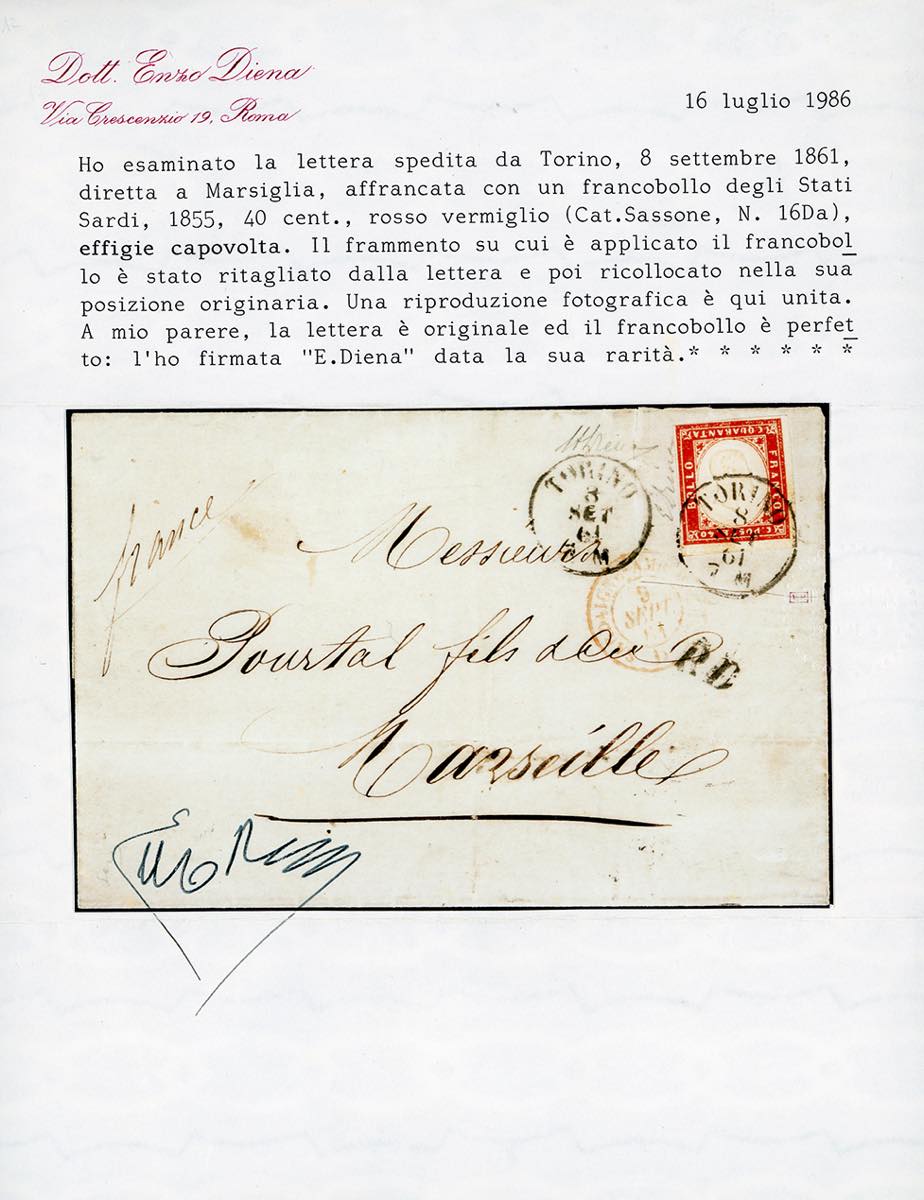 Dott. Enzo Diena
Via Crescenzio 19, Roma
16 luglio 1986
Ho esaminato la lettera spedita da Torino, 8 settembre 1861,
diretta a Marsiglia, affrancata con un francobollo degli Stati
Sardi, 1855, 40 cent., rosso vermiglio (Cat.Sassone, N. 16Da),
effigie capovolta. Il frammento su cui è applicato il francobol
lo è stato ritagliato dalla lettera e poi ricollocato nella sua
posizione originaria. Una riproduzione fotografica è qui unita.
A mio parere, la lettera è originale ed il francobollo è perfet
to: l'ho firmata "E.Diena" data la sua rarità.* * * * * *
C. QUARANTA
BOLLO
FRANCO
C. POST. 40
TORINO
8
SET
61
TORINO
8
SET
61
7 M
france
Messieurs
9
SEPT
Pourtal fils &
P.D
Marseille